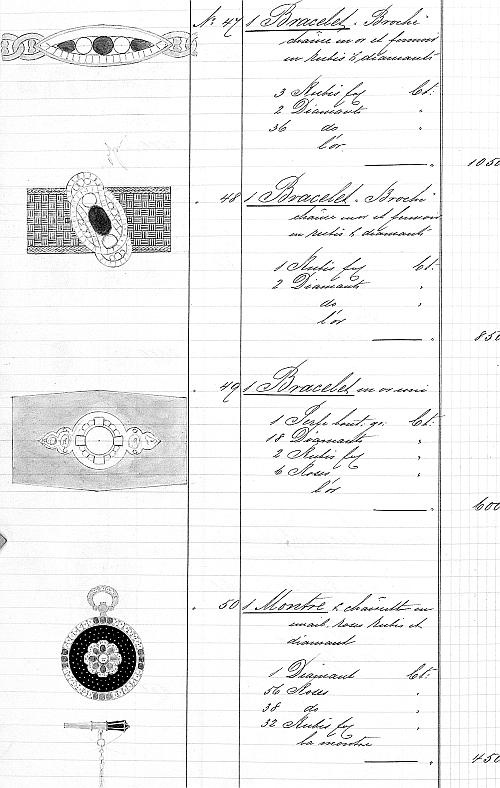 No 47 1 Bracelet - Broche
chaîne en or et fermoir
en rubis & diamants
3 Rubis fog Ct:
2 Diamants "
36 do "
l'or
" 1050
" 48 1 Bracelet - Broche
chaîne en or et fermoir
en rubis & diamants
1 Rubis fog Ct:
2 Diamants "
do "
l'or
" 850
" 49 1 Bracelet en or uni
1 Perle bout. Ct:
18 Diamants "
2 Rubis fog "
6 Roses "
l'or
" 600
" 50 1 Montre & en
émail roses rubis et
diamant
1 Diamant Ct:
56 Roses "
38 do "
32 Rubis fog "
la montre
" 450